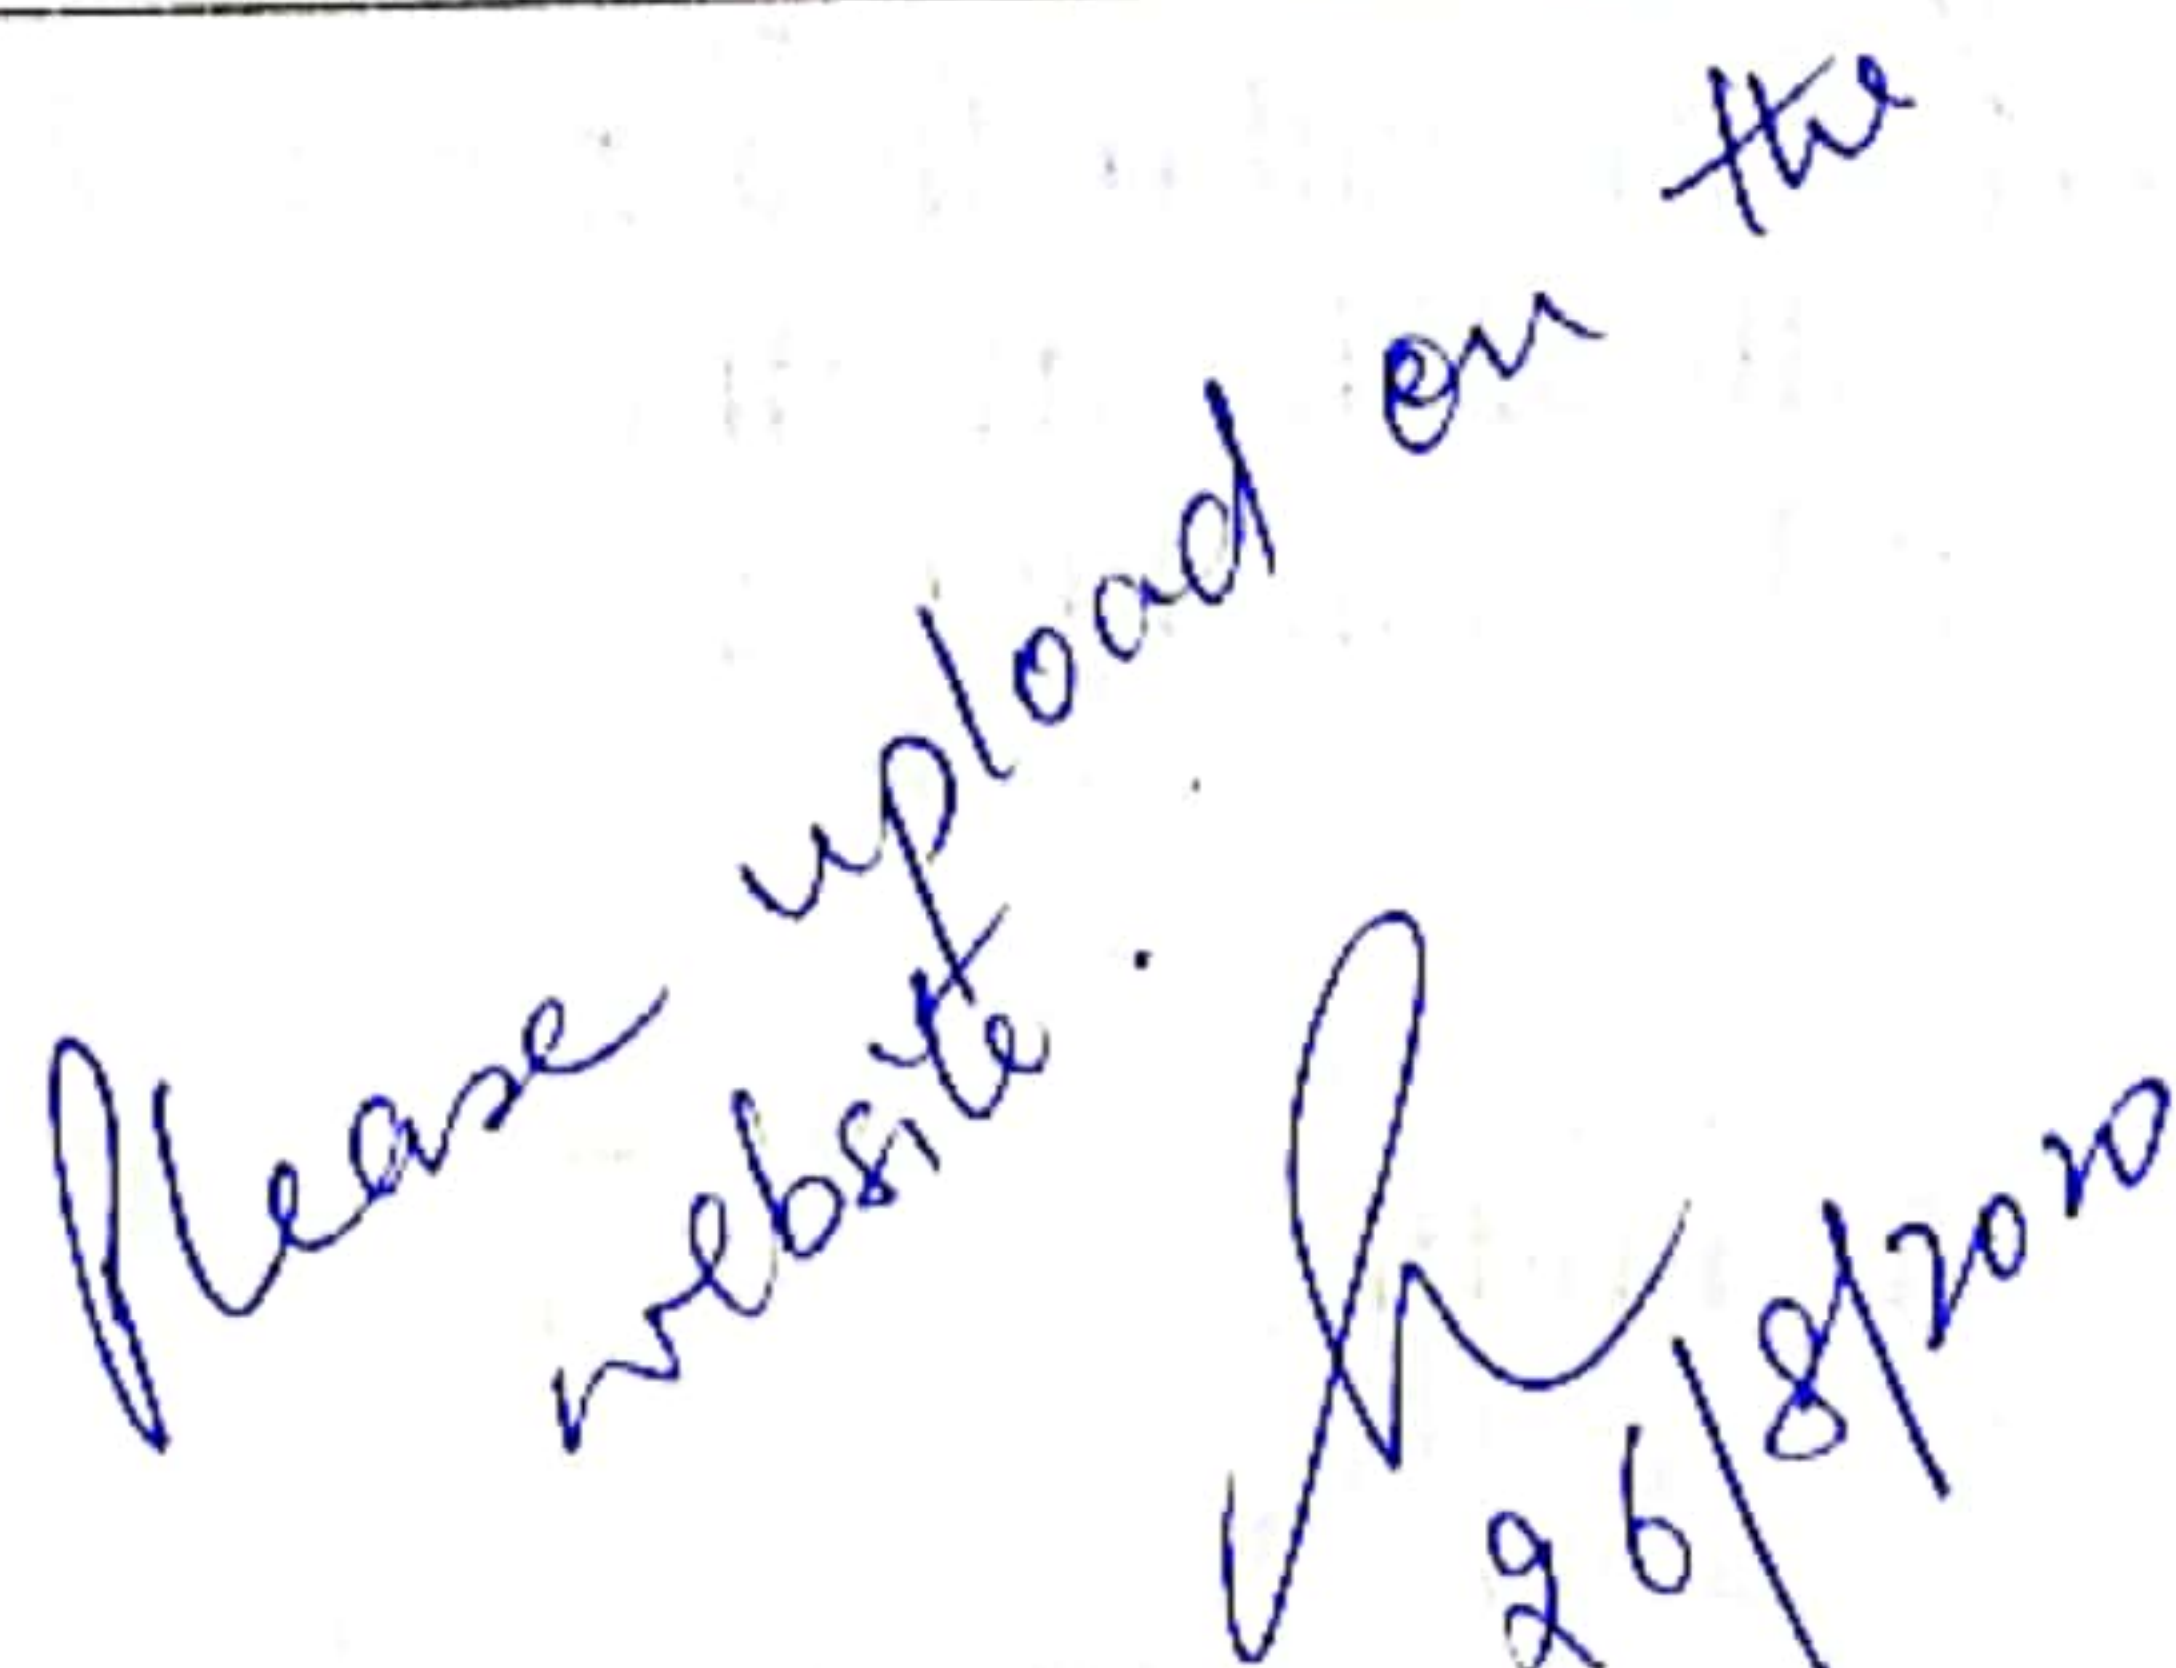 Please upload on the
website.
26/8/2020